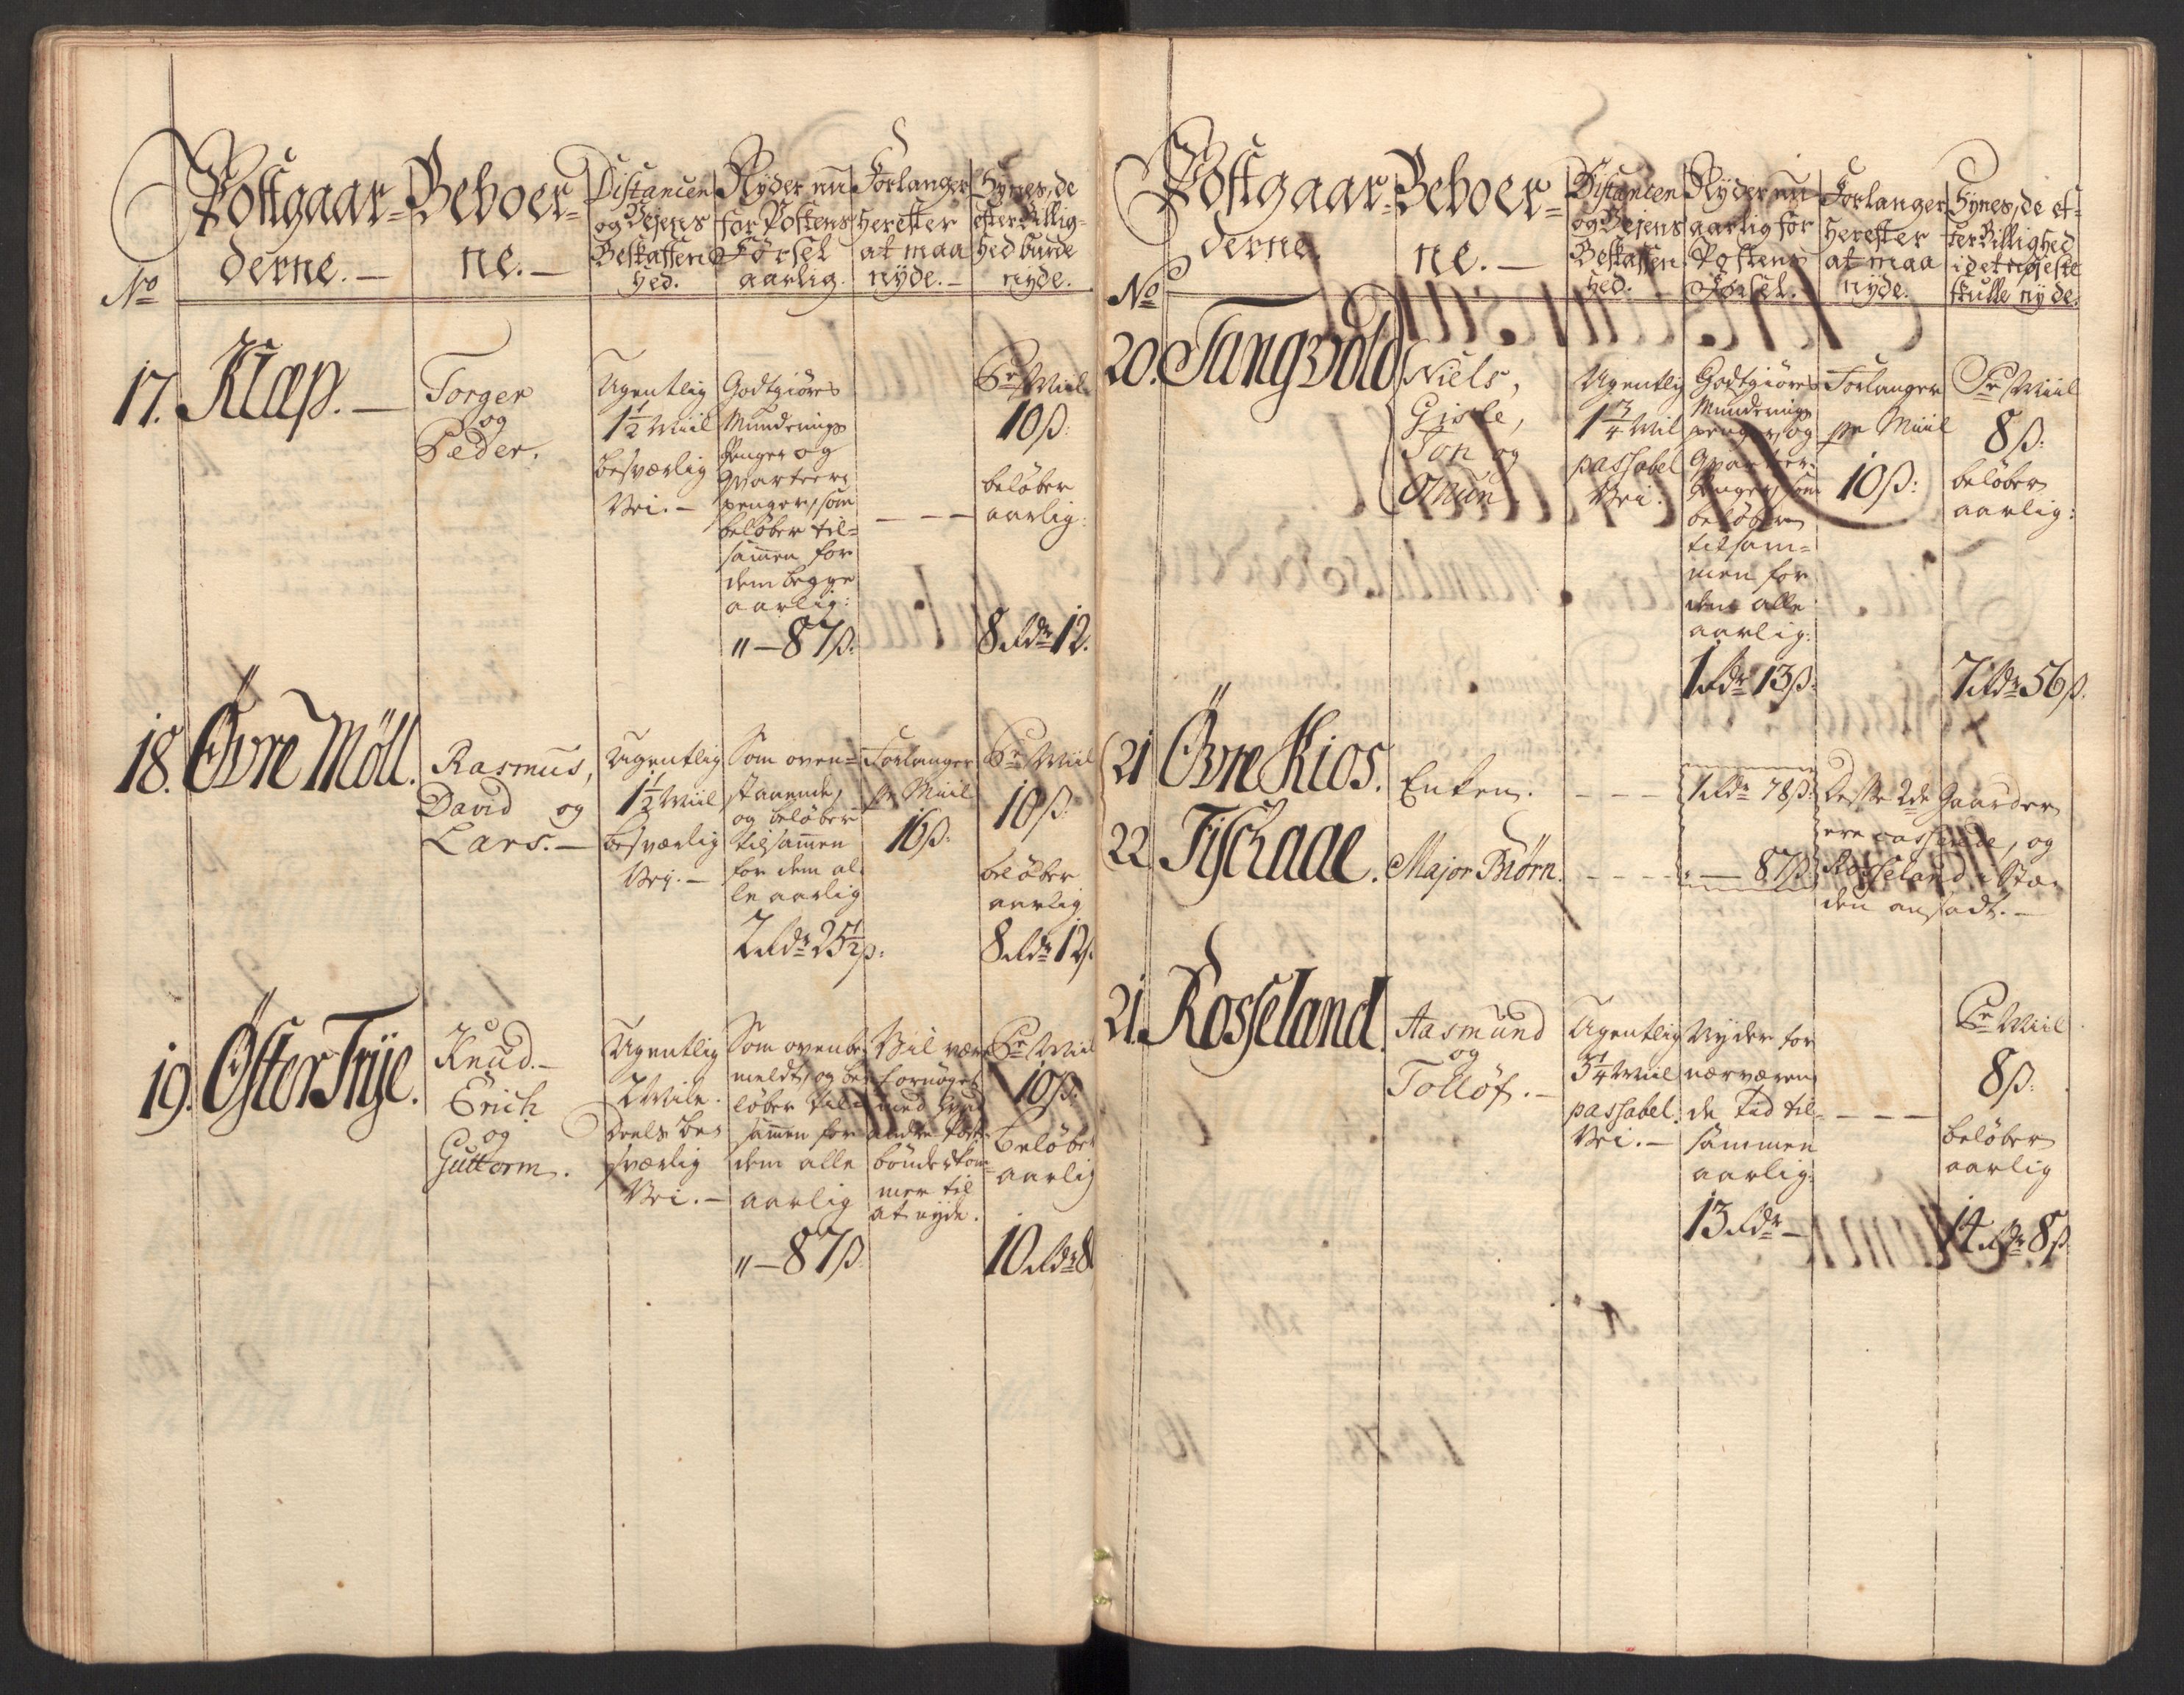 No
Postgaar=
derne. —
Beboer=
ne. —
Distancen
og Vejens
Beskaffen
hed.
Nyder nu
for Postens
Førsel
aarlig.
Forlanger
herefter
at maa
nyde. —
Synes, de
efter Billig=
hed burde
nyde.
17. Klæp. —
Torger
og
Peder.
Ugentlig
1 1/2 Miil
besværlig
Vei. —
Godtgiöres
Munderings
Penger og
Qvarteers
penger, som
beløber til=
sammen for
dem begge
aarlig:
" — 87 ß:
— — —
Pr Miil
10 ß:
beløber
aarlig:
8 Rdr 12.
18. Övre Möll.
Rasmus,
David og
Lars. —
Ugentlig
1 1/2 Miil
besværlig
Vej. —
Som oven=
staaende,
og beløber
tilsammen
for dem al=
le aarlig
2 Rdr 25 1/2 ß:
Forlanger
pr Miil
16 ß:
Pr Miil
10 ß:
beløber
aarlig
8 Rdr 12 ß.
19. Öster Trÿe.
Knud. —
Erich
og
Guttorm.
Ugentlig
2 Mile.
Deels be=
sværlig
Vei. —
Som ovenbe=
meldt, og be=
løber til=
sammen for
dem alle
aarlig
" — 87 ß.
Vil være
fornøyet
med hvad
andre Post=
bönder kom=
mer til
at nyde.
Pr Miil
10 ß:
beløber
aarlig
10 Rdr 8
No
Postgaar=
derne.
Beboer=
ne. —
Distancen
og Vejens
Beskaffen
hed.
Nyder nu
aarlig for
Postens
Førsel.
Forlanger
herefter
at maa
nyde.
Synes, de ef=
ter Billighed
i det nøjeste
skulle nyde.
20. Tangvold
Niels,
Gisle,
Jon og
Omun
Ugentlig
1 3/4 Mil
passabel
Vei.
Godtgiöres
Munderings
penger, og
Qvarteer=
Penger, som
beløber
tilsam=
men for
dem alle
aarlig:
1 Rdr 13 ß:
Forlanger
pr Miil
10 ß:
Pr Miil
8 ß:
beløber
aarlig:
7 Rdr 56 ß.
21 Övre Kios.
Enken.
— — —
1 Rdr 78 ß:
22. Fischaae.
Major Biørn.
— — — —
" — 87 ß:
Disse 2de Gaarder
ere casserede, og
Rosseland i Stæ=
den ansadt. —
21. Rosseland.
Aasmund
og
Tolløf. —
Ugentlig
3 1/4 Miil
passabel
Vei. —
Nyder for
nærværen
de tid til=
sammen
aarlig:
13 Rdr —
— — —
Pr Miil
8 ß:
beløber
aarlig
14 Rdr 8 ß